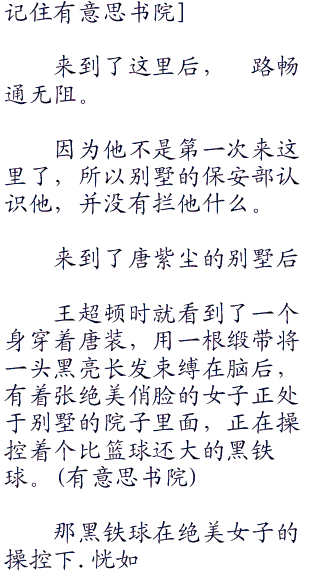 记住有意思书院]
来到了这里后， 路畅
通无阻。
因为他不是第一次来这
里了，所以别墅的保安部认
识他，并没有拦他什么。
来到了唐紫尘的别墅后
王超顿时就看到了一个
身穿着唐装，用一根缎带将
一头黑亮长发束缚在脑后，
有着张绝美俏脸的女子正处
于别墅的院子里面，正在操
控着个比篮球还大的黑铁
球。(有意思书院)
那黑铁球在绝美女子的
操控下.恍如